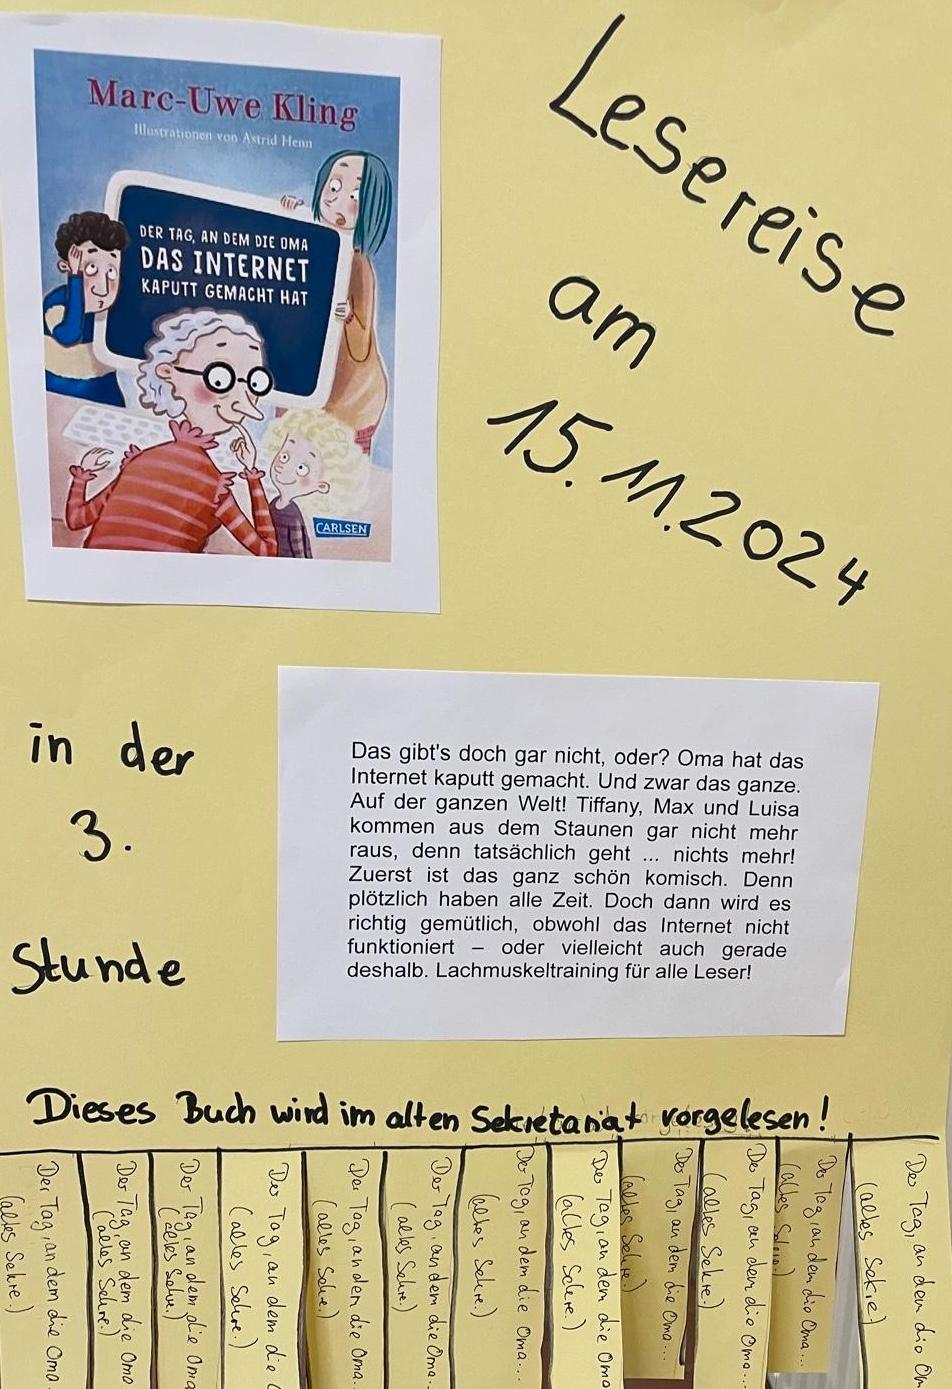 Marc-Uwe Kling
Illustrationen von Astrid Henn
DER TAG, AN DEM DIE OMA
DAS INTERNET
KAPUTT GEMACHT HAT
CARLSEN
Lesereise
am
15.11.2024
in der
3.
Stunde
Das gibt's doch gar nicht, oder? Oma hat das
Internet kaputt gemacht. Und zwar das ganze.
Auf der ganzen Welt! Tiffany, Max und Luisa
kommen aus dem Staunen gar nicht mehr
raus, denn tatsächlich geht ... nichts mehr!
Zuerst ist das ganz schön komisch. Denn
plötzlich haben alle Zeit. Doch dann wird es
richtig gemütlich, obwohl das Internet nicht
funktioniert – oder vielleicht auch gerade
deshalb. Lachmuskeltraining für alle Leser!
Dieses Buch wird im alten Sekretariat vorgelesen!
Der Tag, an dem die Oma
(altes Sekre.)
Der Tag, an dem die Oma
(altes Sekre.)
Der Tag, an dem die Oma
(altes Sekre.)
Der Tag, an dem die
(altes Sekre.)
Der Tag, an dem die Oma...
(altes Sekre.)
Der Tag, an dem die Oma...
(altes Sekre.)
Der Tag, an dem die Oma...
(altes Sekre.)
Der Tag, an dem die Oma
(altes Sekre.)
Der Tag, an dem die Oma...
(altes Sekre.)
Der Tag, an dem die Oma...
(altes Sekre.)
Der Tag, an dem die Oma...
(altes Sekre.)
Der Tag, an dem die Om
(altes Sekre.)